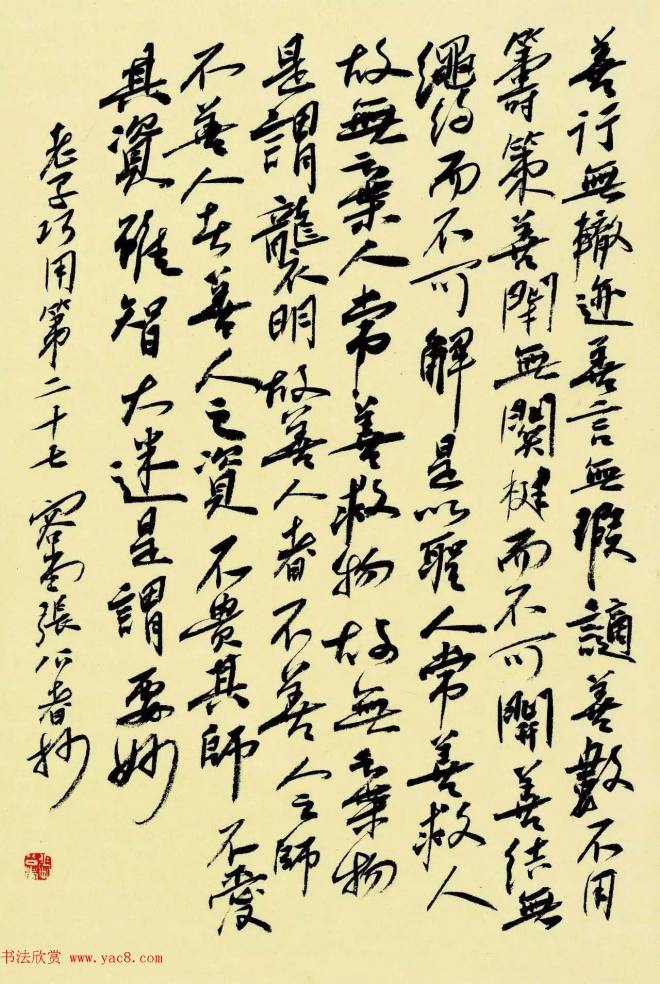 善行無轍迹善言無瑕謫善數不用
籌策善閉無關楗而不可開善結無
繩約而不可解是以聖人常善救人
故無棄人常善救物故無棄物
是謂襲明故善人者不善人之師
不善人者善人之資不貴其師不愛
其資雖智大迷是謂要妙
老子巧用第二十七 容堂張公者抄
书法欣赏 www.yac8.com